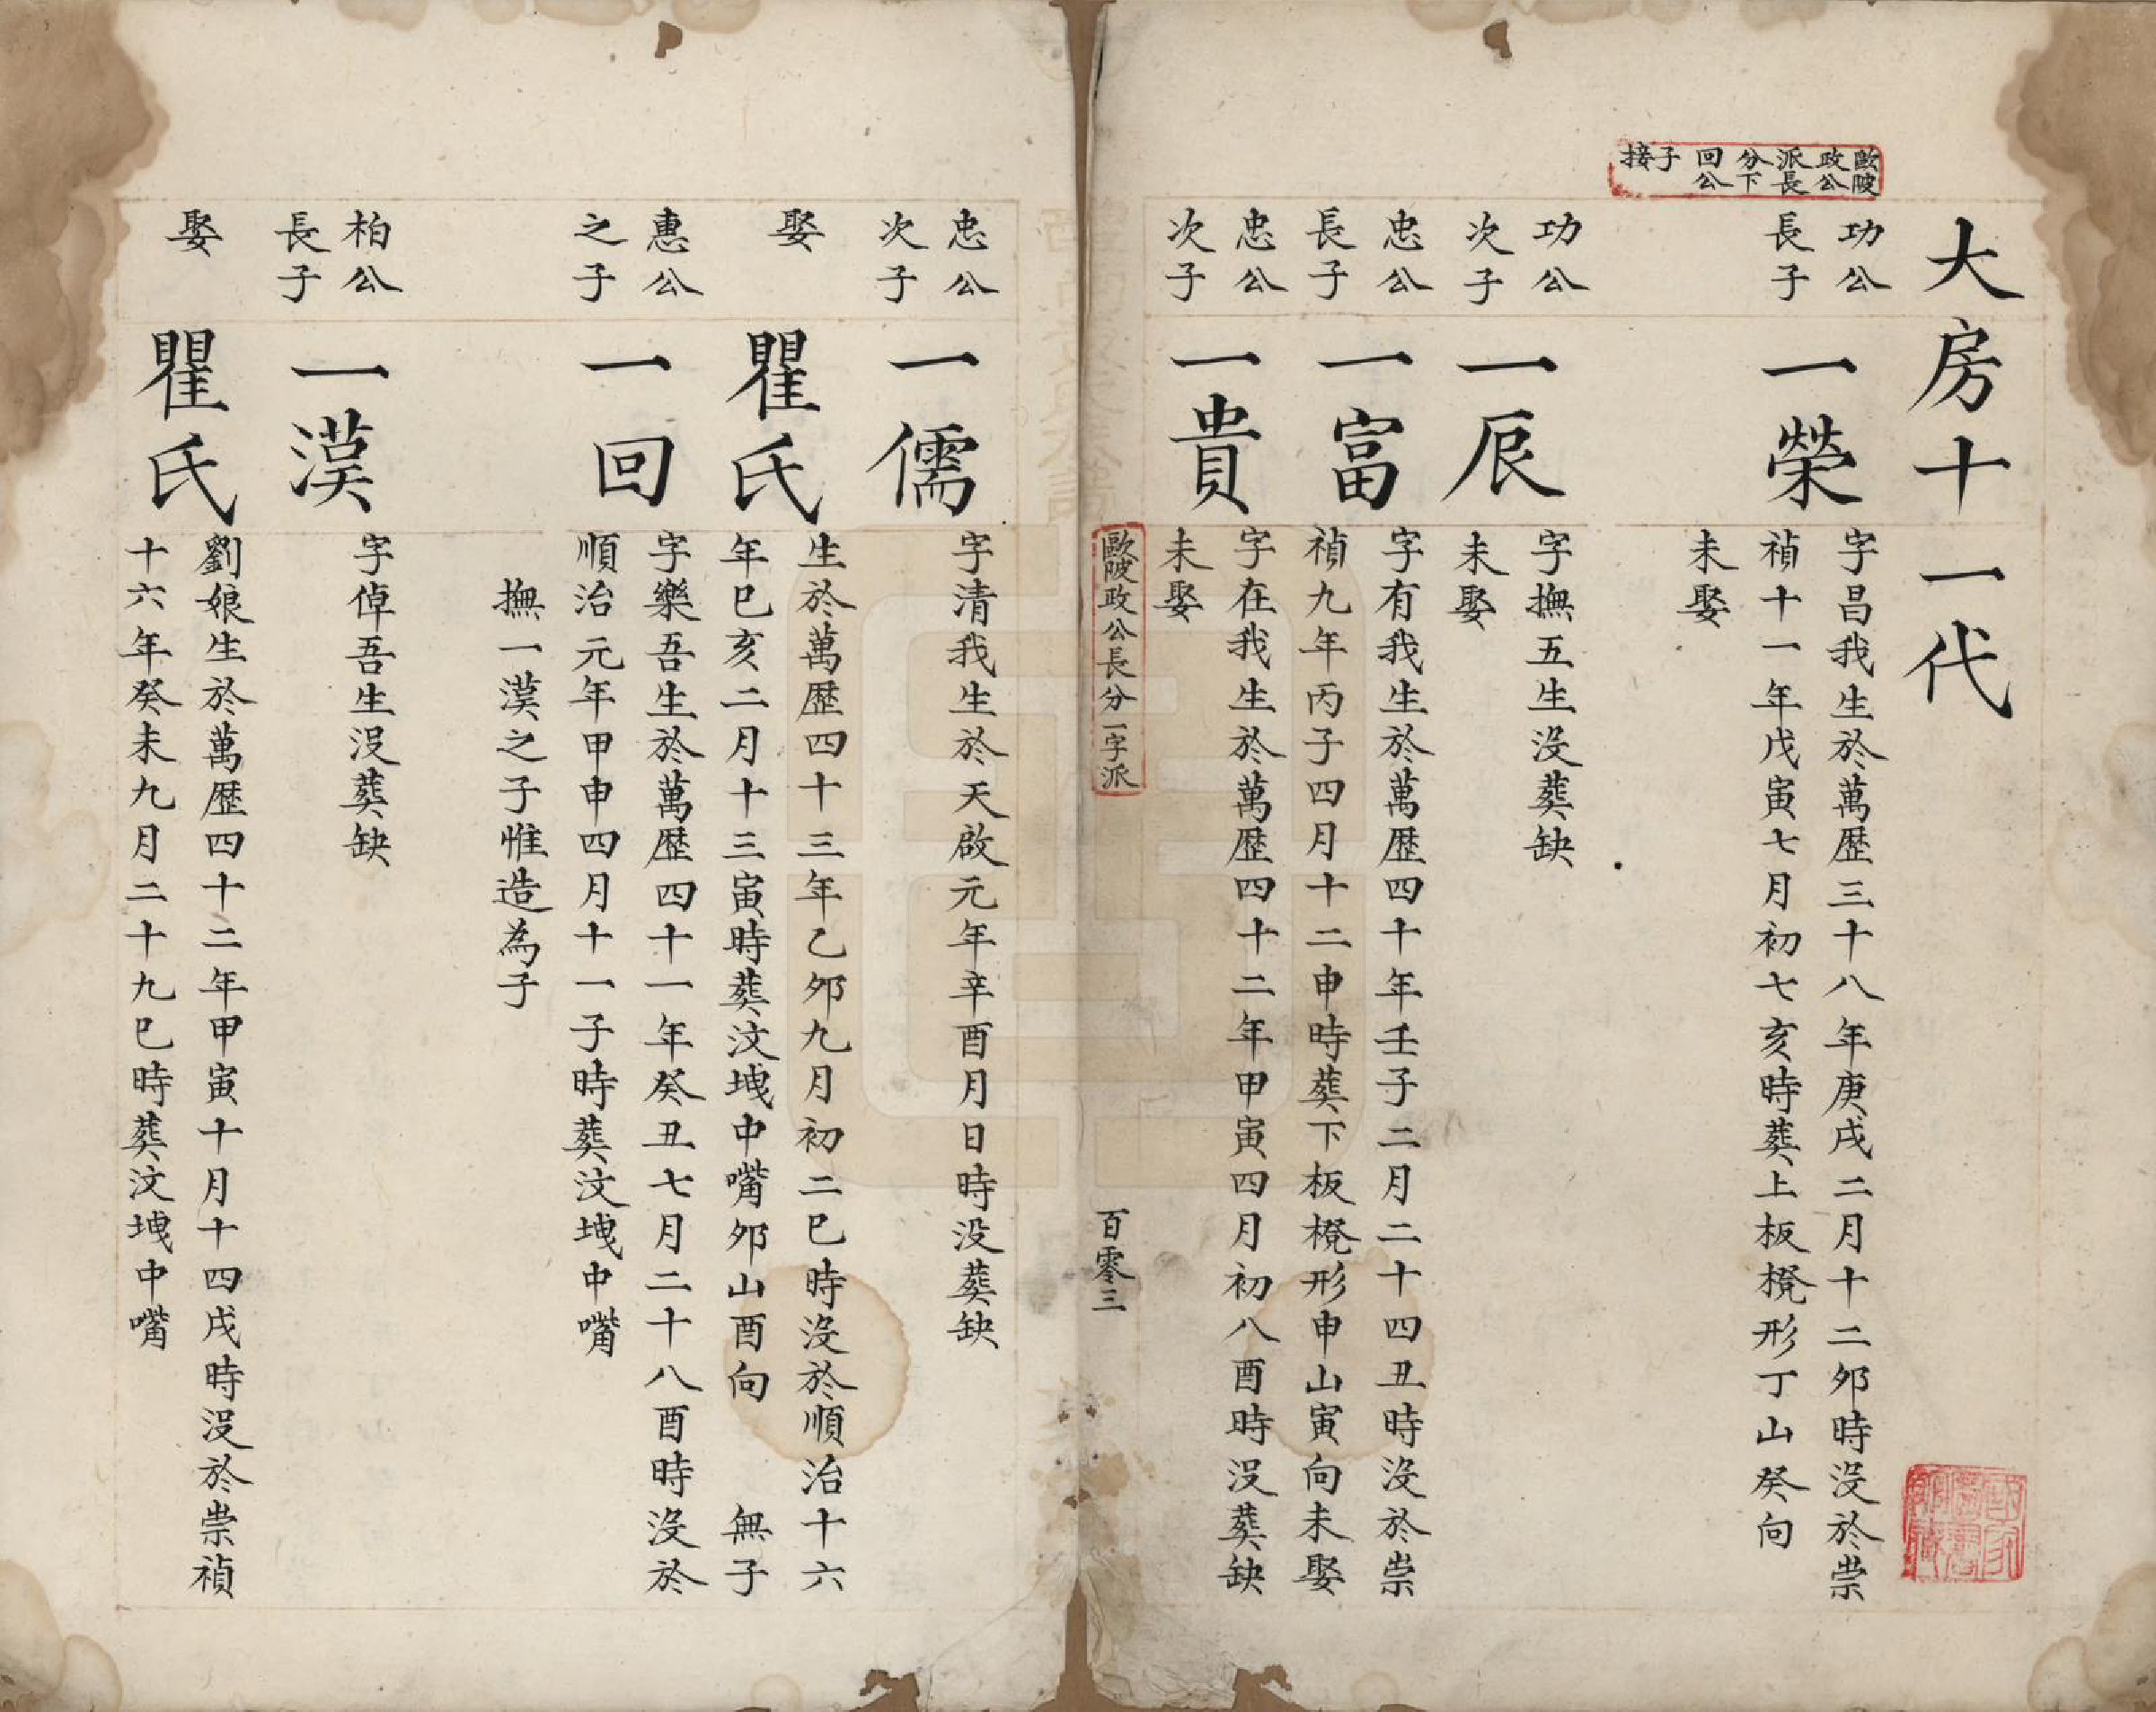 歐陂政公派長分下回公子接
大房十一代
功公長子
一榮
字昌我生於萬歷三十八年庚戌二月十二夘時没於崇
禎十一年戊寅七月初七亥時葬上板櫈形丁山癸向
未娶
功公次子
一辰
字撫五生没葬缺
未娶
忠公長子
一富
字有我生於萬歷四十年壬子二月二十四丑時没於崇
禎九年丙子四月十二申時葬下板櫈形申山寅向未娶
忠公次子
一貴
字在我生於萬歷四十二年甲寅四月初八酉時没葬缺
未娶
歐陂政公長分一字派
百零三
忠公次子
一儒
字清我生於天啟元年辛酉月日時没葬缺
娶
瞿氏
生於萬歷四十三年乙夘九月初二巳時没於順治十六
年巳亥二月十三寅時葬汶塊中嘴夘山酉向 無子
惠公之子
一回
字樂吾生於萬歷四十一年癸丑七月二十八酉時没於
順治元年甲申四月十一子時葬汶塊中嘴
撫一漢之子惟造為子
柏公長子
一漢
字倬吾生没葬缺
娶
瞿氏
劉娘生於萬歷四十二年甲寅十月十四戌時没於崇禎
十六年癸未九月二十九巳時葬汶塊中嘴